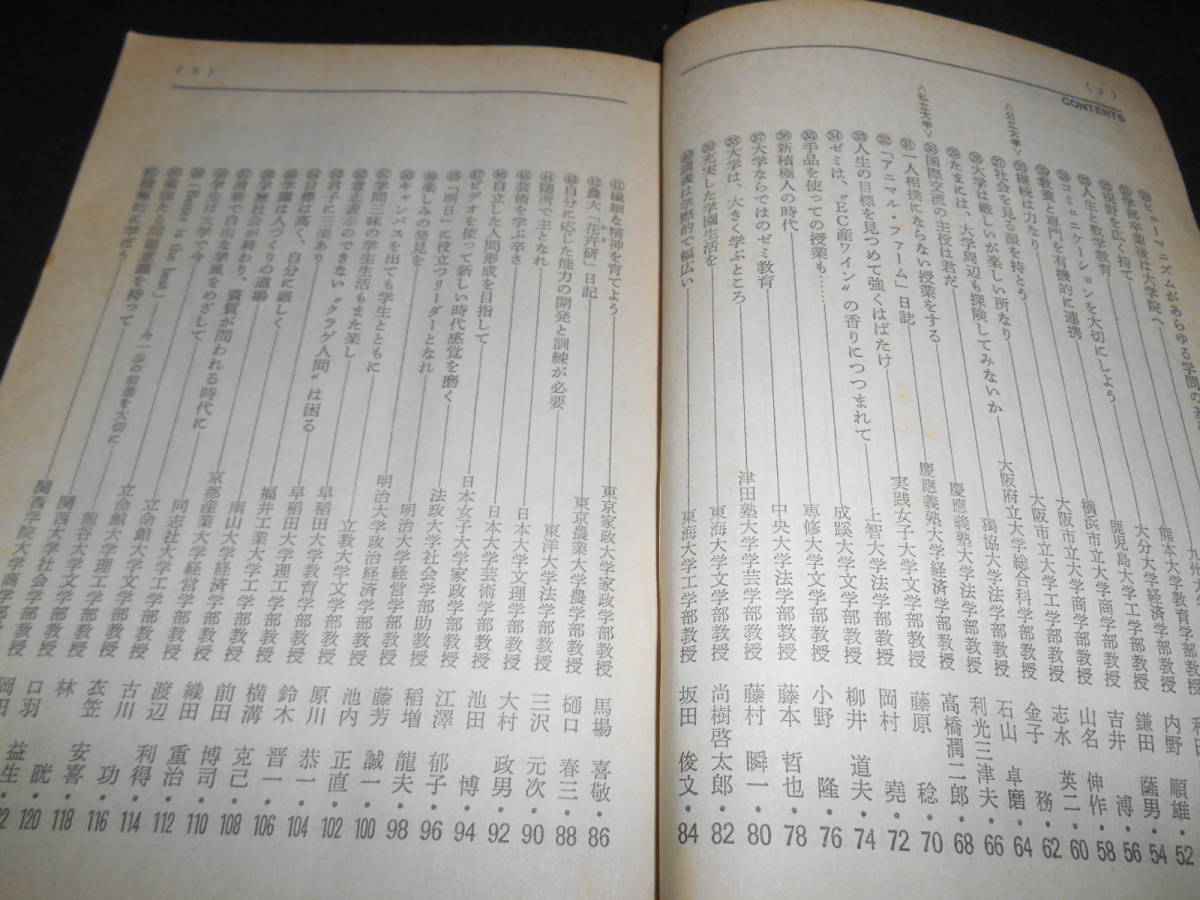 (2)
CONTENTS
ヒューマニズムがあらゆる学問の
㉑学部卒業後は大学院へ
㉒視野を広く持て 熊本大学教育学部教授
㉓人生と数学教育 大分大学経済学部教授 内野 順雄・52
㉔コミュニケーションを大切にしよう 鹿児島大学工学部教授 鎌田 薩男・54
〈公立大学〉
㉕教養と専門を有機的に連携 横浜市立大学商学部教授 吉井 溥・56
㉖継続は力なり 大阪市立大学商学部教授 山名 伸作・58
㉗社会を見る眼を持とう 大阪市立大学工学部教授 志水 英二・60
㉘大学は厳しいが楽しい所なり 大阪府立大学総合科学部教授 金子 務・62
〈私立大学〉
㉙たまには、大学周辺も探険してみないか 獨協大学法学部教授 石山 卓磨・64
㉚国際交流の主役は君だ 慶應義塾大学法学部教授 利光三津夫・66
㉛一人相撲にならない授業をする 慶應義塾大学経済学部教授 高橋潤二郎・68
㉜「アニマル・ファーム」日誌 実践女子大学文学部教授 藤原 稔・70
㉝人生の目標を見つめて強くはばたけ 上智大学法学部教授 岡村 堯・72
㉞ゼミは、“EC産ワイン”の香りにつつまれて 成蹊大学文学部教授 柳井 道夫・74
㉟手品を使っての授業も…… 専修大学文学部教授 小野 隆・76
㊱新積極人の時代 中央大学法学部教授 藤本 哲也・78
㊲大学ならではのゼミ教育 津田塾大学学芸学部教授 藤村 瞬一・80
㊳大学は、大きく学ぶところ 東海大学文学部教授 尚樹啓太郎・82
㊴充実した学園生活を
㊵講義は学際的で幅広い 東海大学工学部教授 坂田 俊文・84
(3)
㊶繊細な精神を育てよう 東京家政大学家政学部教授 馬場 喜敬・86
㊷農大「花卉研」日記 東京農業大学農学部教授 樋口 春三・88
㊸自分に応じた能力の開発と訓練が必要 東洋大学法学部教授 三沢 元次・90
㊹随所で主となれ 日本大学文理学部教授 大村 政男・92
㊺芸術を学ぶ辛さ 日本大学芸術学部教授 池田 博・94
㊻自立した人間形成を目指して 日本女子大学家政学部教授 江澤 郁子・96
㊼ビデオを使って新しい時代感覚を磨く 法政大学社会学部助教授 稲増 龍夫・98
㊽「明日」に役立つリーダーとなれ 明治大学経営学部教授 藤芳 誠一・100
㊾楽しみの発見を 明治大学政治経済学部教授 池内 正直・102
㊿キャンパスを出ても学生とともに 立教大学文学部教授 原川 恭一・104
学問三昧の学生生活もまた楽し 早稲田大学教育学部教授 鈴木 晋一・106
意志表示のできない“クラゲ人間”は困る 早稲田大学理工学部教授 横溝 克己・108
君子に三楽あり 福井工業大学工学部教授 前田 博司・110
目標は高く、自分に厳しく 南山大学経済学部教授 織田 重治・112
学園は人づくりの道場 京都産業大学経営学部教授 渡辺 利得・114
学歴社会が終わり、資質が問われる時代に 同志社大学工学部教授 古川 功・116
清新で自由な学風をめざして 立命館大学文学部教授 衣笠 安喜・118
学問は大学で今 立命館大学理工学部教授 林 晄・120
「Better is the best」―今一歩の前進を大切に 龍谷大学文学部教授 口羽 益生・122
問題意識を持って 関西大学社会学部教授 岡田
積極的に学ぼう 関西学院大学商学部教授